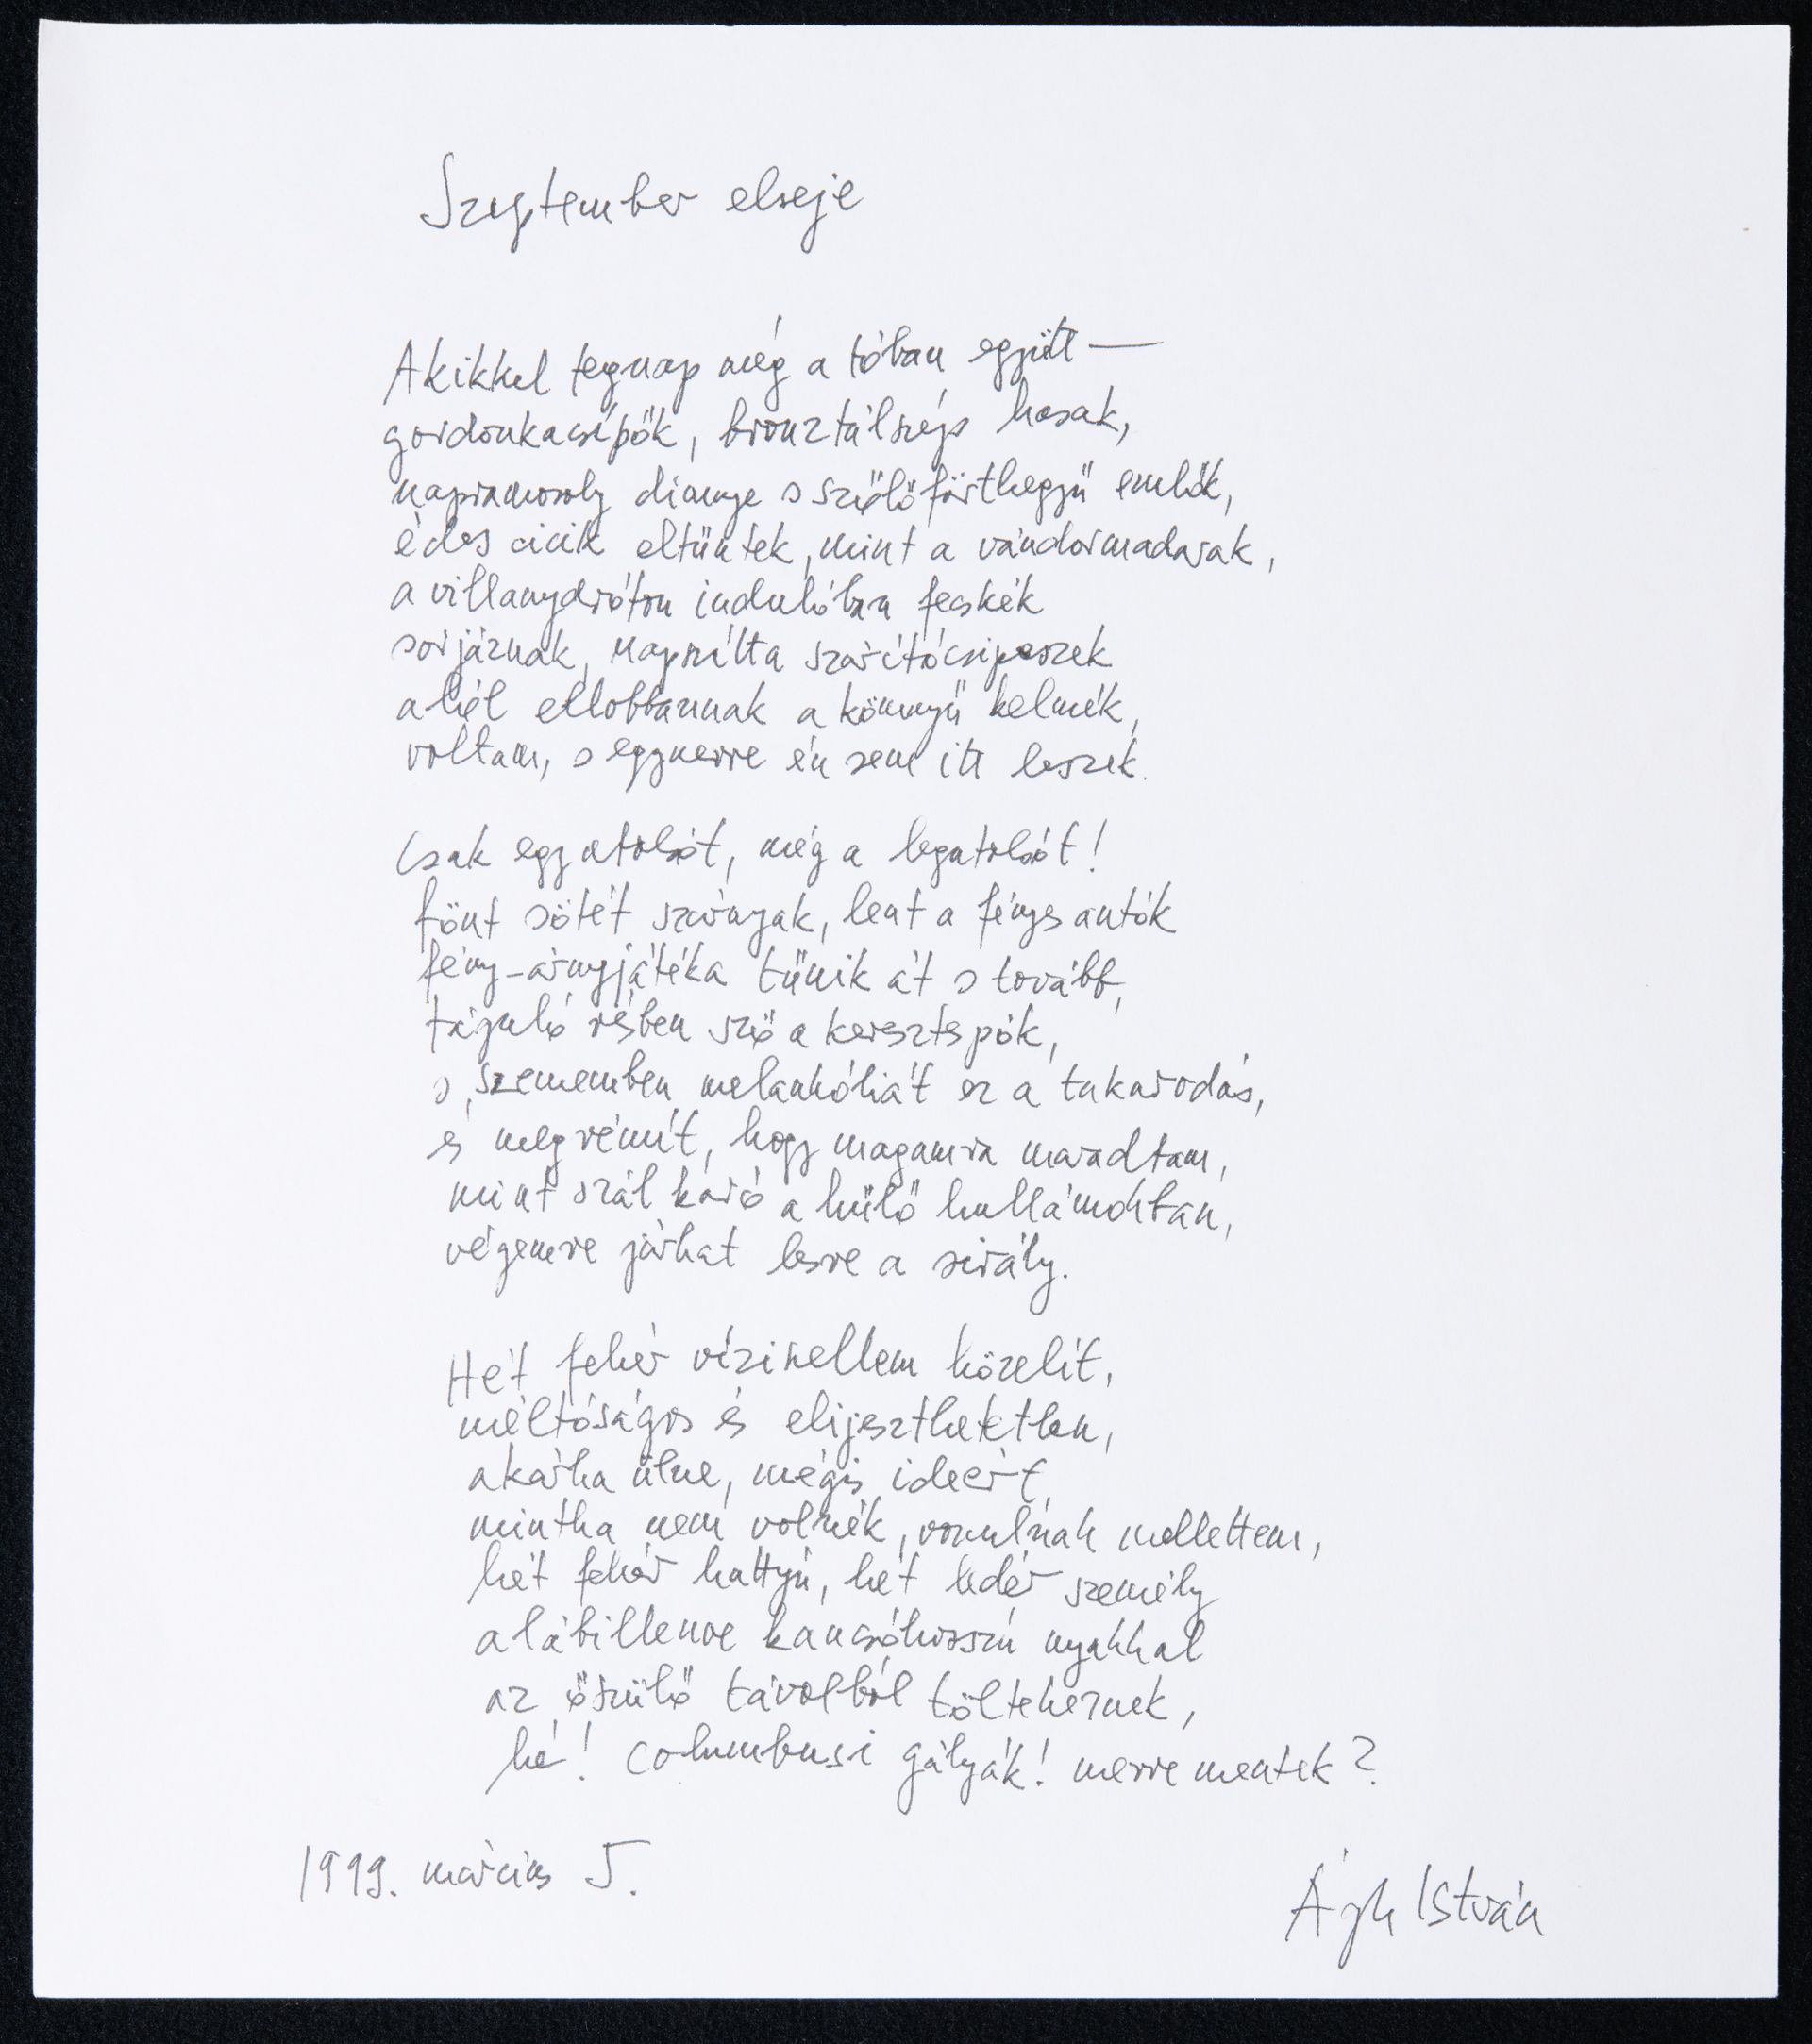 Szeptember elseje
Akikkel tegnap még a tóban együtt —
gordonkacsípők, bronztálszép hasak,
napramosoly dinnye s szőlőfürthegyű emlők,
édes cicik eltűntek, mint a vándormadarak,
a villanydróton indulóban fecskék
sorjáznak, napszítta szárítócsipeszek
ahol ellobbannak a könnyű kelmék,
voltam, s egyszerre én sem itt leszek.
Csak egy utolsót, még a legutolsót!
fönt sötét szárnyak, lent a fényes autók
fény-árnyjátéka tűnik át s tovább,
táguló résben sző a keresztespók,
s szememben melankóliát ez a takarodás,
és megrémít, hogy magamra maradtam,
mint szál karó a hűlő hullámokban,
végemre járhat lesre a sirály.
Hét fehér vízi szellem közelít,
méltóságos és elijeszthetetlen,
akárha ülne, mégis ideért,
mintha nem volnék, vonulnak mellettem,
hét fehér hattyú, hét ledér személy
alábillenve kancsóhosszú nyakkal
az őszülő távolból töltekeznek,
hé! columbusi gályák! merre mentek?
1999. március 5.
Ágh István